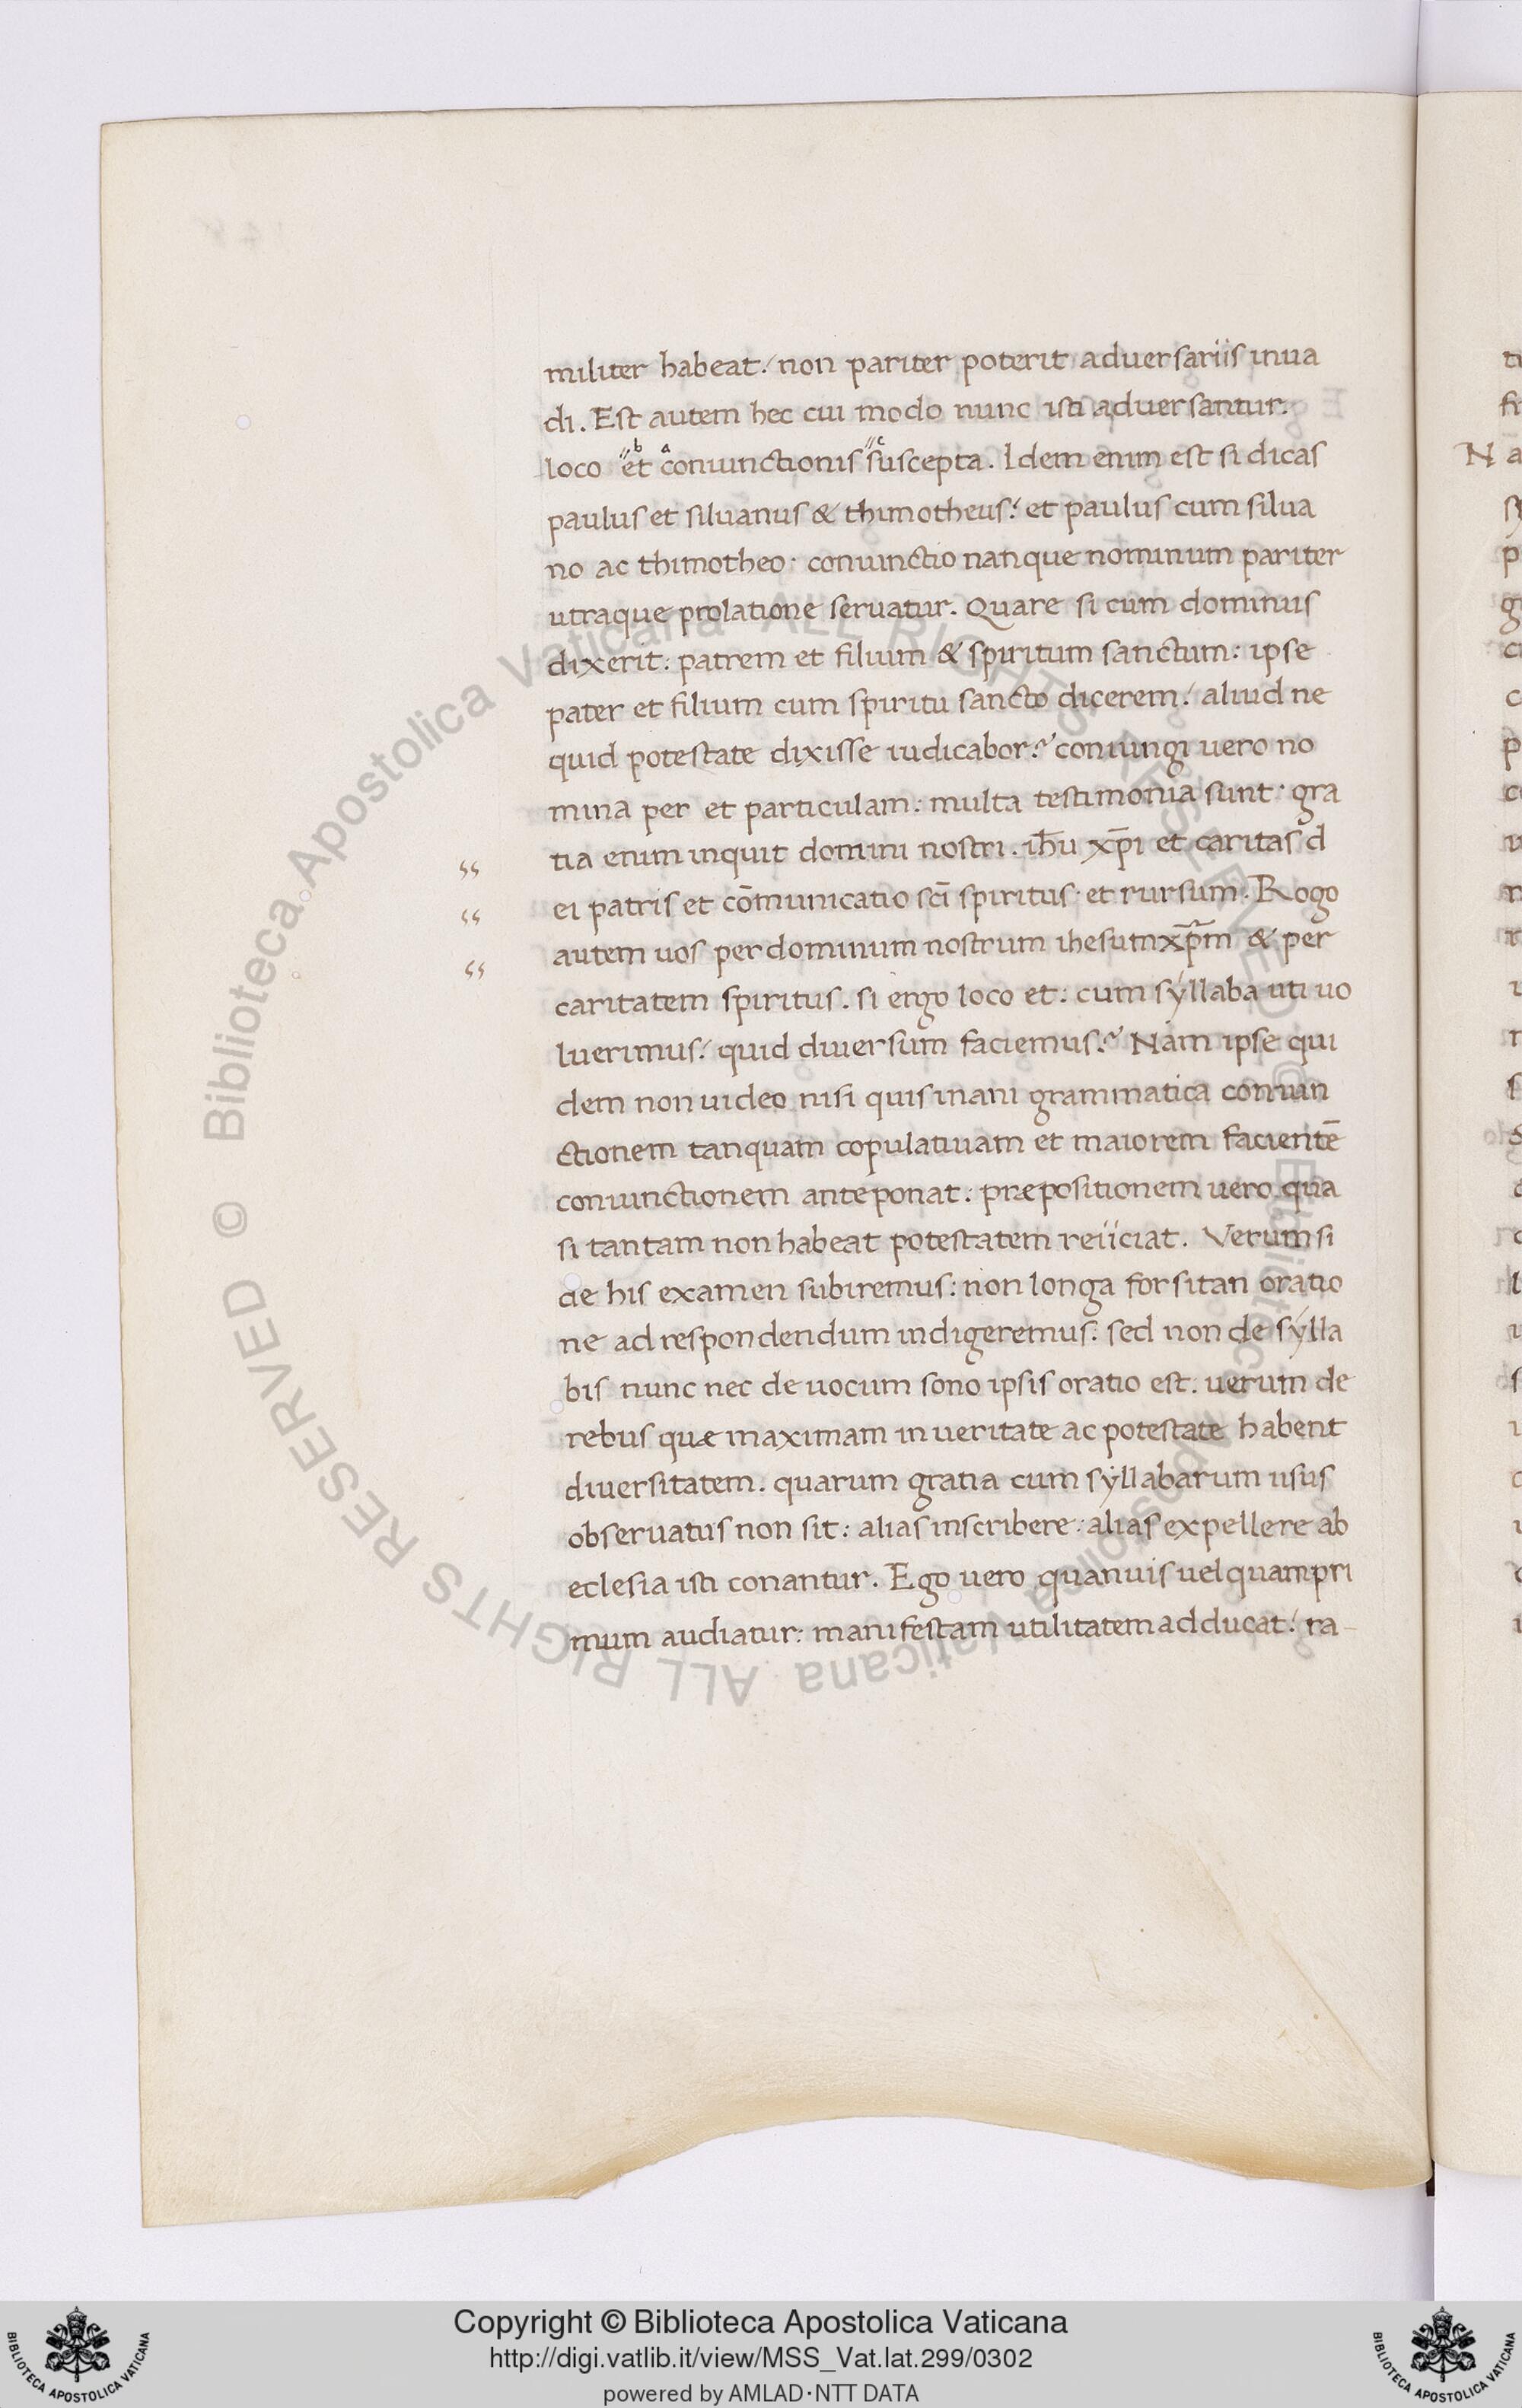 militer habeat: non pariter poterit aduersariis inua
di. Est autem hec cui modo nunc isti aduersantur.
loco "et^b ^a coniunctionis "^c suscepta. Idem enim est si dicas
paulus et siluanus & thimotheus: et paulus cum silua
no ac thimotheo· coniunctio nanque nominum pariter
utraque prolatione seruatur. Quare si cum dominus
dixerit: patrem et filium & spiritum sanctum: ipse
pater et filium cum spiritu sancto dicerem: aliud ne
quid potestate dixisse iudicabor? coniungi uero no
mina per et particulam: multa testimonia sunt· gra
tia enim inquit domini nostri. ihu̅ xp̅i et caritas d
ei patris et co̅municatio sci̅ spiritus· et rursum· Rogo
autem uos per dominum nostrum ihesum xp̅m & per
caritatem spiritus. si ergo loco et: cum syllaba uti uo
luerimus: quid diuersum faciemus? Nam ipse qui
dem non uideo nisi quis inani grammatica coniun
ctionem tanquam copulatiuam et maiorem faciente̅
coniunctionem anteponat: præpositionem uero qua
si tantam non habeat potestatem reiiciat. Verum si
de his examen subiremus: non longa forsitan oratio
ne ad respondendum indigeremus. sed non de sylla
bis nunc nec de uocum sono ipsis oratio est. uerum de
rebus quæ maximam in ueritate ac potestate habent
diuersitatem. quarum gratia cum syllabarum usus
obseruatus non sit: alias inscribere: alias expellere ab
eclesia isti conantur. Ego uero quanuis uel quampri
mum audiatur: manifestam utilitatem adducat: ra-
Copyright © Biblioteca Apostolica Vaticana
http://digi.vatlib.it/view/MSS_Vat.lat.299/0302
powered by AMLAD·NTT DATA